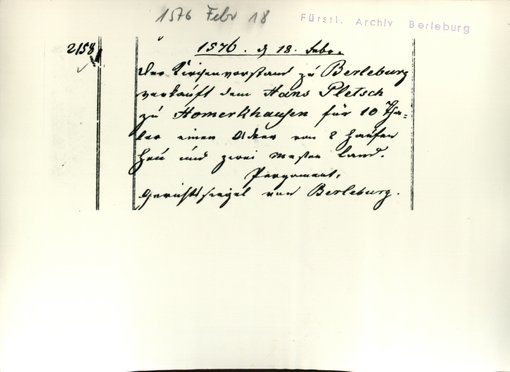 1576 Febr 18
Fürstl. Archiv Berleburg
2158
1576. d 18. Febr.
Der Kirchenvorstand zu Berleburg
verkauft dem Hans Pletsch
zu Homerkhausen für 10 Tha-
ler einen Acker von 2 Haufen
Heu und zwei Mesten Land.
Pergament,
Gerichtssiegel von Berleburg.